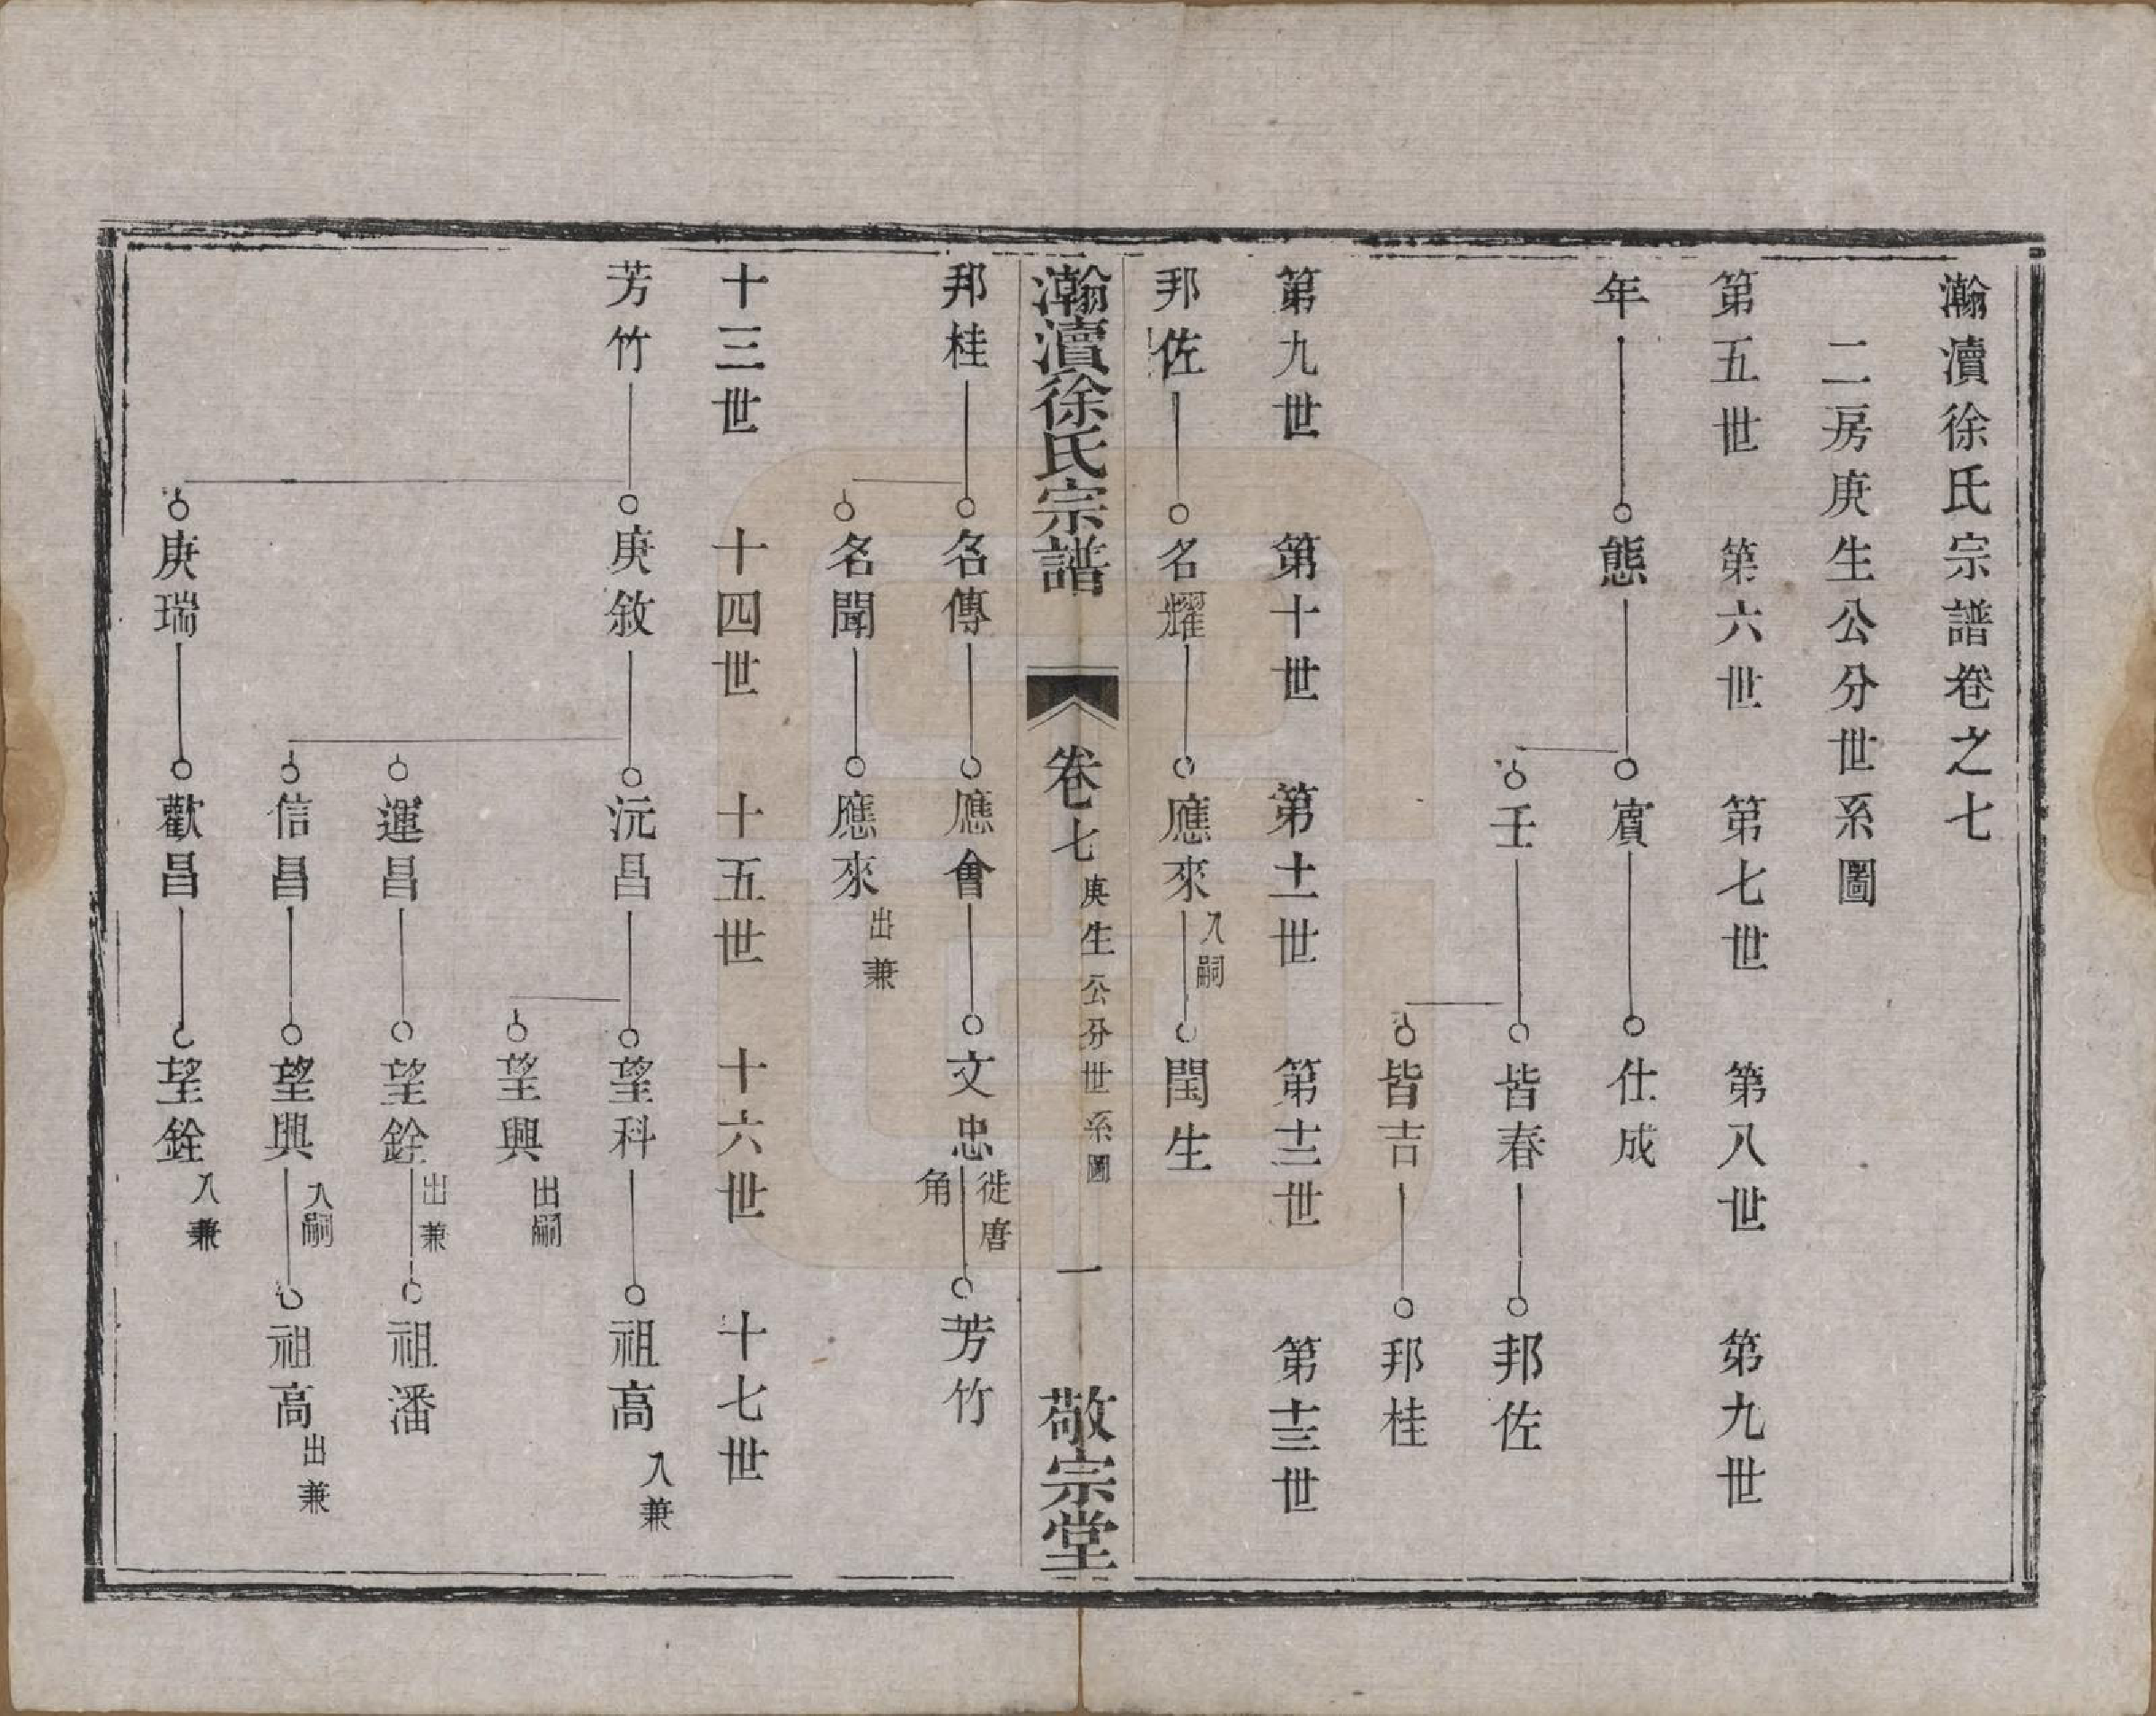 瀚瀆徐氏宗譜卷之七
二房庚生公分世系圖
第五世　第六世　第七世　第八世　第九世
年　態　賓　仕成
壬　皆春　邦佐
皆吉　邦桂
第九世　第十世　第十一世　第十二世　第十三世
邦佐　名耀　應來　入嗣　閏生
瀚瀆徐氏宗譜　卷七　庚生公分世系圖　一　敬宗堂
邦桂　名傳　應會　文忠　徙唐角　芳竹
名聞　應來　出兼
十三世　十四世　十五世　十六世　十七世
芳竹　庚敘　沅昌　望科　祖高　入兼
望興　出嗣
運昌　望銓　出兼　祖潘
信昌　望興　入嗣　祖高　出兼
庚瑞　歡昌　望銓　入兼